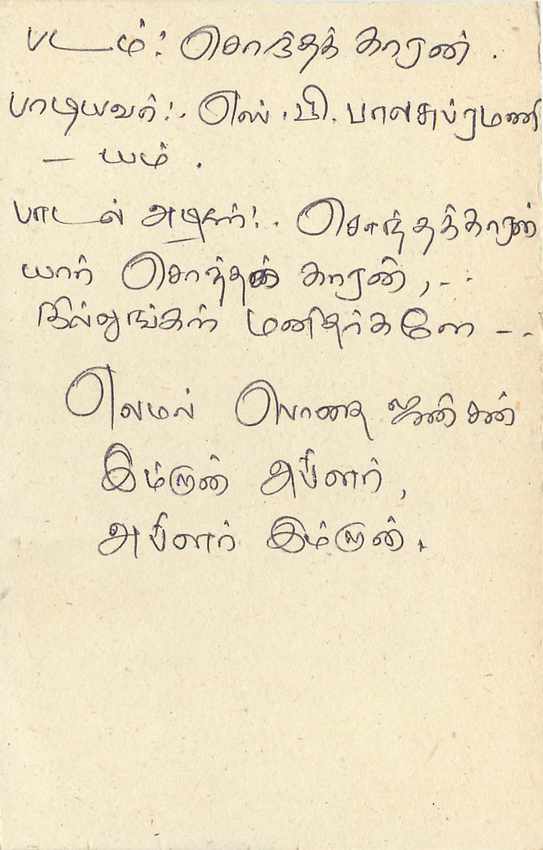 படம்:- சொந்தக் காரன்.
பாடியவர்:- எஸ்.பி. பாலசுப்ரமணி
- யம்.
பாடல் அடிகள்:- சொந்தக்காரன்
யார் சொந்தக் காரன், --
நில்லுங்கள் மனிதர்களே --
இம்ரான்
இம்ரான்.